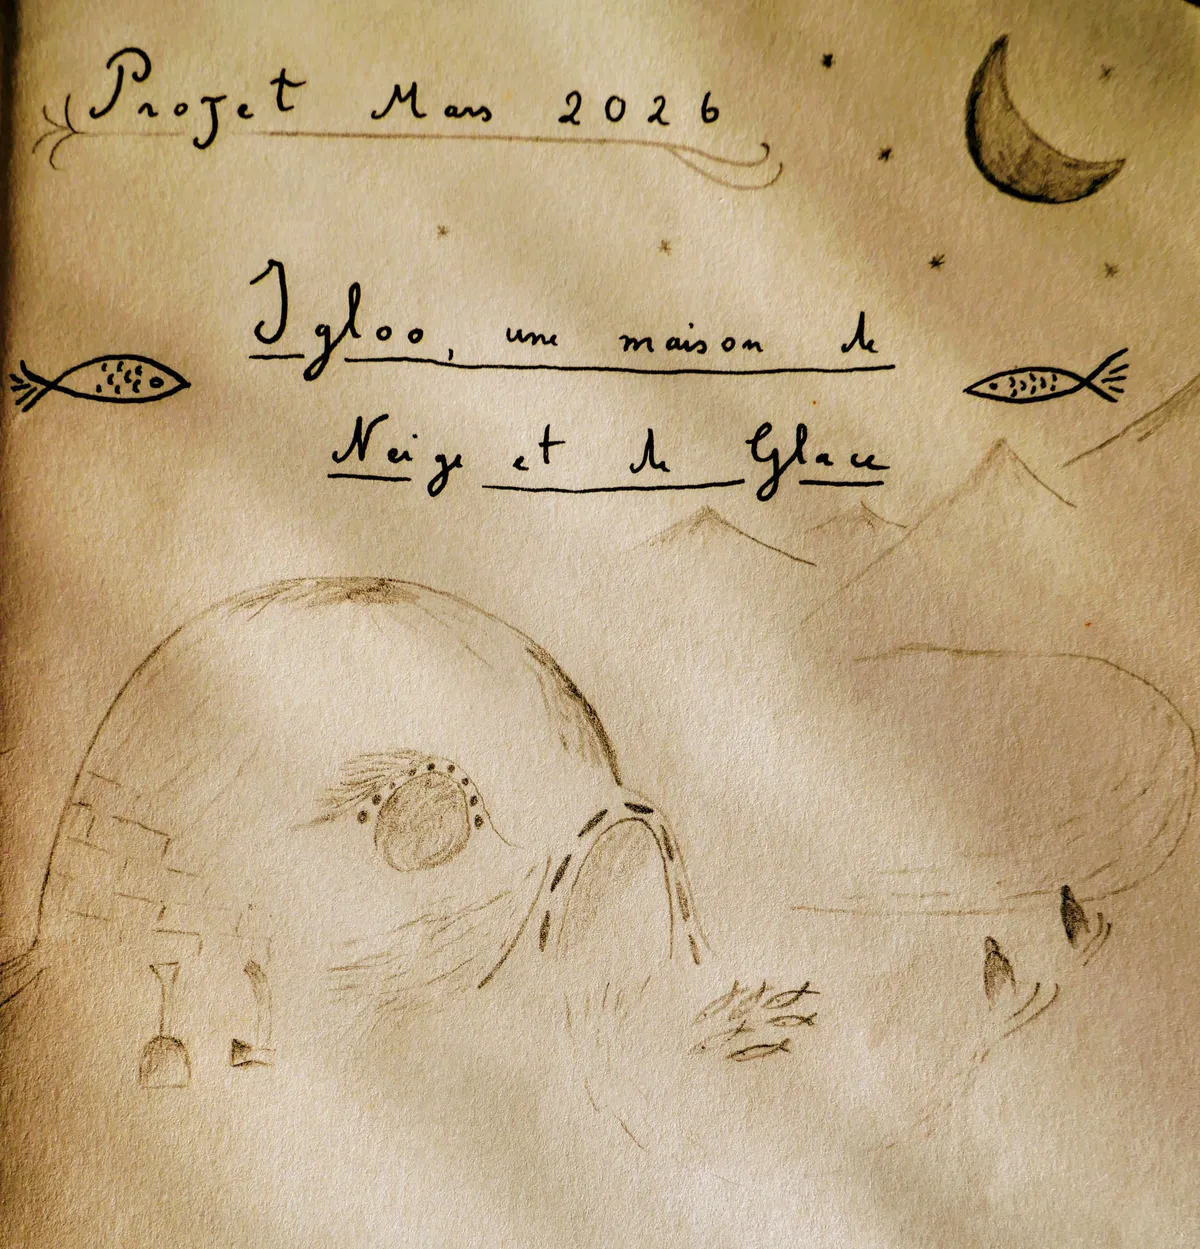 Projet Mars 2026
Igloo, une maison de
Neige et de Glace